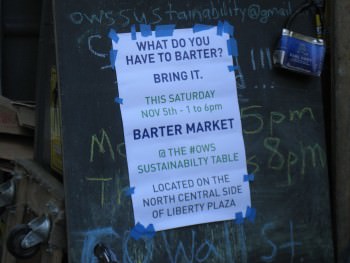 owssustainability@gmail
WHAT DO YOU
HAVE TO BARTER?
BRING IT.
THIS SATURDAY
NOV 5th - 1 to 6pm
BARTER MARKET
@ THE #OWS
SUSTAINABILTY TABLE
LOCATED ON THE
NORTH CENTRAL SIDE
OF LIBERTY PLAZA
5pm
8pm
Wall St